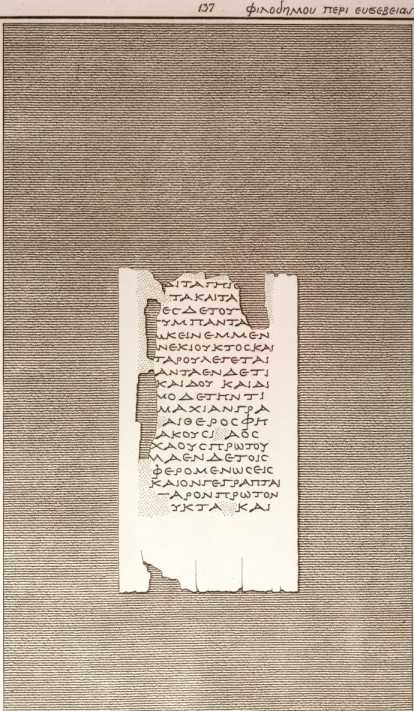 137 φιλοδήμου περι ευσεβειας
ΑΙΤΑΤΗΣ
ΤΑΚΑΙΤΑ
ΕϹΔΕΤΟΥ
ΥΜΠΑΝΤΑ
ΚΕΙΝΕΜΜΕΝ
ΝΕΚΙΟΥΚΤΟϹΚΑΙ
ΤΑΡΟΥΛΕΓΕΤΑΙ
ΑΝΤΑΕΝΔΕΤΙ
ΚΑΙΔΟΥ ΚΑΙΔΙ
ΜΟΔΕΤΗΝΤΙ
ΜΑΧΙΑΝΓΡΑ
ΑΙΘΕΡΟϹΦΗ
ΑΚΟΥϹΙ ΑΟϹ
ΧΑΟΥϹΠΡΩΤΟΥ
ΛΑΕΝΔΕΤΟΙϹ
ΦΕΡΟΜΕΝΩϹΕΙϹ
ΚΑΙΟΝΓΕΓΡΑΠΤΑΙ
ΓΑΡΟΝΠΡΩΤΟΝ
ΥΚΤΑ ΚΑΙ